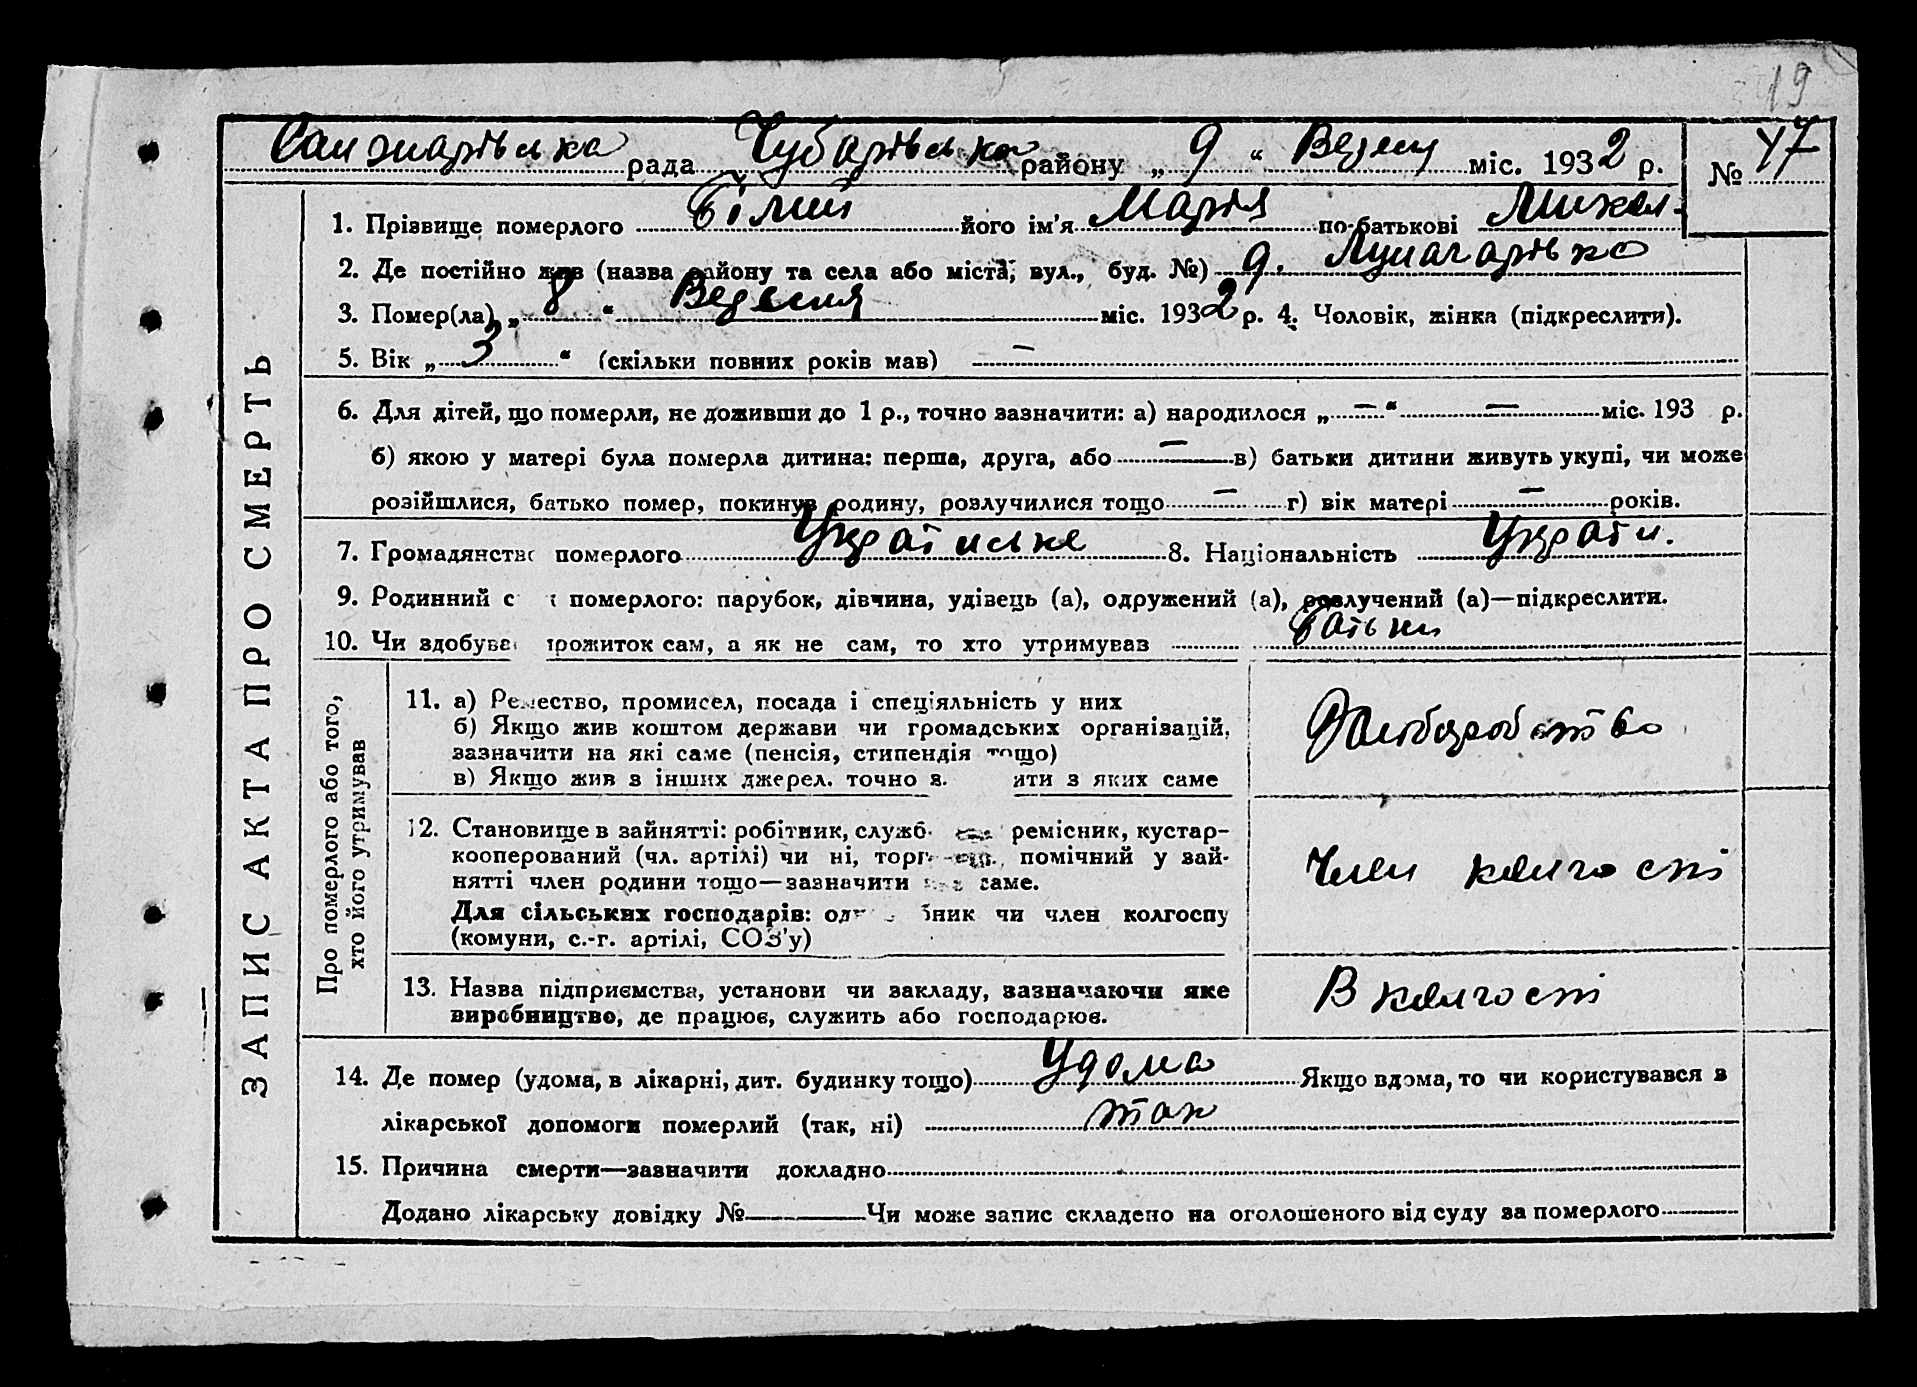 19
Санжарівська рада Чубарівська району „ 9 “ Вересн міс. 1932 р. № 47
ЗАПИС АКТА ПРО СМЕРТЬ
1. Прізвище померлого Білий його ім'я Марія по-батькові Микол.
2. Де постійно жив (назва району та села або міста, вул., буд. №) 9. Луначарівка
3. Помер(ла) „ 8 “ Вересня міс. 1932 р. 4. Чоловік, жінка (підкреслити).
5. Вік „ 3 “ (скільки повних років мав) —
6. Для дітей, що померли, не доживши до 1 р., точно зазначити: а) народилося „ — “ — міс. 193 р.
б) якою у матері була померла дитина: перша, друга, або — в) батьки дитини живуть укупі, чи може
розійшлися, батько помер, покинув родину, розлучилися тощо — г) вік матері — років.
7. Громадянство померлого Українське 8. Національність Україн.
9. Родинний с померлого: парубок, дівчина, удівець (а), одружений (а), розлучений (а)—підкреслити.
10. Чи здобував прожиток сам, а як не сам, то хто утримував Батьки
Про померлого або того,
хто його утримував
11. а) Ремество, промисел, посада і спеціяльність у них
б) Якщо жив коштом держави чи громадських організацій,
зазначити на які саме (пенсія, стипендія тощо)
в) Якщо жив з інших джерел, точно з ити з яких саме
Хліборобство
12. Становище в зайнятті: робітник, служб ремісник, кустар-
кооперований (чл. артілі) чи ні, торг помічний у зай-
нятті член родини тощо—зазначити саме.
Для сільських господарів: од бник чи член колгоспу
(комуни, с.-г. артілі, СОЗ'у)
Член колгоспі
13. Назва підприємства, установи чи закладу, зазначаючи яке
виробництво, де працює, служить або господарює.
В колгоспі
14. Де помер (удома, в лікарні, дит. будинку тощо) Удома Якщо вдома, то чи користувався з
лікарської допомоги померлий (так, ні) так
15. Причина смерти—зазначити докладно
Додано лікарську довідку № Чи може запис складено на оголошеного від суду за померлого